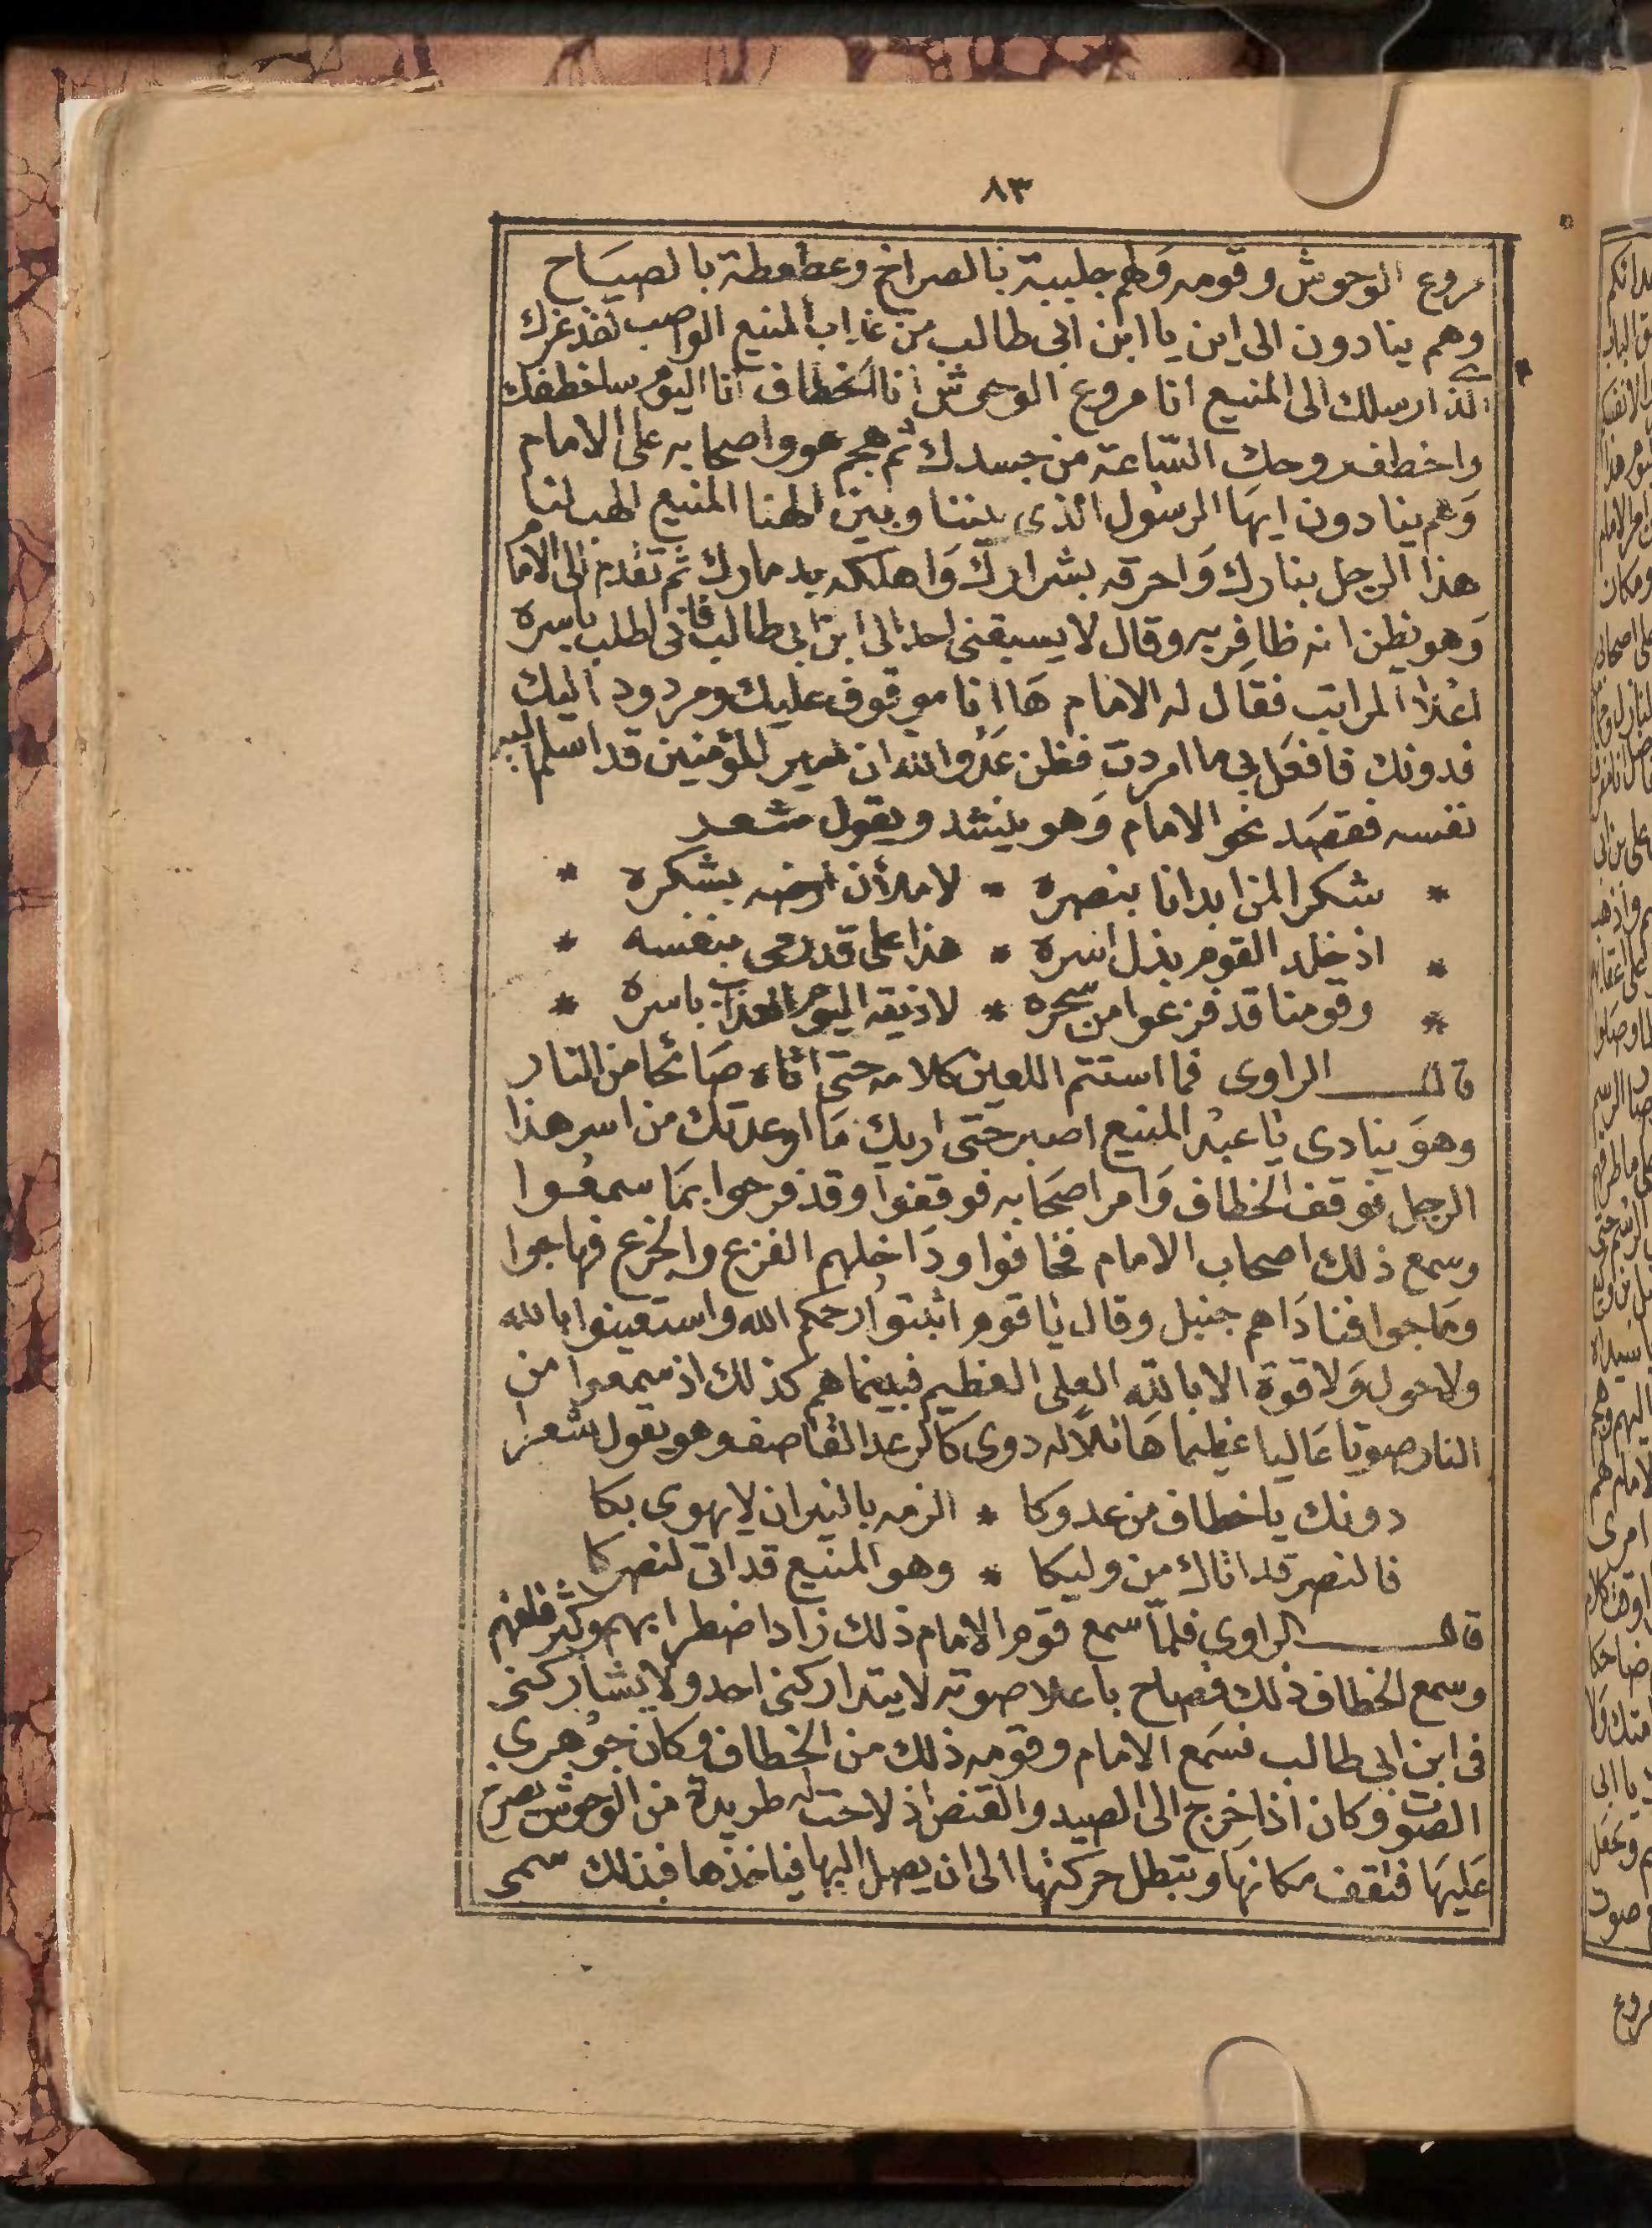 ٨٣
مروع الوحوش وقومه ولهم جلبة بالصراخ وعطعطة بالصياح
وهم ينادون الى اين يا ابن ابى طالب من عذاب المنيع الواصب لقد غرك
الذى ارسلك الى المنيع انا مروع الوحوش انا الخطاف انا اليوم ساخطفك
واخطف روحك الساعة من جسدك ثم هجم هو واصحابه على الامام
وهم ينادون ايها الرسول الذى بيننا وبين الهنا المنيع الهب لنا
هذا الرجل بنارك واحرقه بشرارك واهلكه بدمارك ثم تقدم الى الامام
وهو يظن انه ظافر به وقال لا يسبقنى احد الى ابن ابى طالب فانى اطلب باسره
اعلا المراتب فقال له الامام ها انا موقوف عليك ومردود اليك
فدونك فافعل بى ما اردت فظن عدو الله ان امير المؤمنين قد اسلم اليه
نفسه فقصد نحو الامام وهو ينشد ويقول شعر
* شكرا لمن ابدانا بنصره * لاملأن ارضه بشكره *
* اذ خلد القوم بذل اسره * هذا على قد رمى بنفسه *
* وقومنا قد فزعوا من سحره * لاذيقه اليوم العذاب باسره *
قال الراوى فما استتم اللعين كلامه حتى اتاه صائحا من النار
وهو ينادى يا عبد المنيع اصبر حتى اريك ما اوعدتك من اسر هذا
الرجل فوقف الخطاف وامر اصحابه فوقفوا وقد فرحوا بما سمعوا
وسمع ذلك اصحاب الامام فخافوا وداخلهم الفزع والجزع فهاجوا
وماجوا فناداهم جنبل وقال يا قوم اثبتوا رحمكم الله واستعينوا بالله
ولا حول ولا قوة الا بالله العلى العظيم فبينما هم كذلك اذ سمعوا من
النار صوتا عاليا عظيما هائلا له دوى كالرعد القاصف وهو يقول شعر
دونك يا خطاف من عدوكا * الزمه بالنيران لا يهوى بكا
فالنصر قد اتاك من وليكا * وهو المنيع قد اتى لنصركا
قال الراوى فلما سمع قوم الامام ذلك زاد اضطرابهم وكثر قلقهم
وسمع الخطاف ذلك فصاح باعلا صوته لا يتداركنى احد ولا يشاركنى
فى ابن ابى طالب فسمع الامام وقومه ذلك من الخطاف وكان جوهرى
الصوت وكان اذا خرج الى الصيد والقنص اذ لاحت له طريدة من الوحوش يصرخ
عليها فتقف مكانها وتبطل حركتها الى ان يصل اليها فياخذها فبذلك سمى